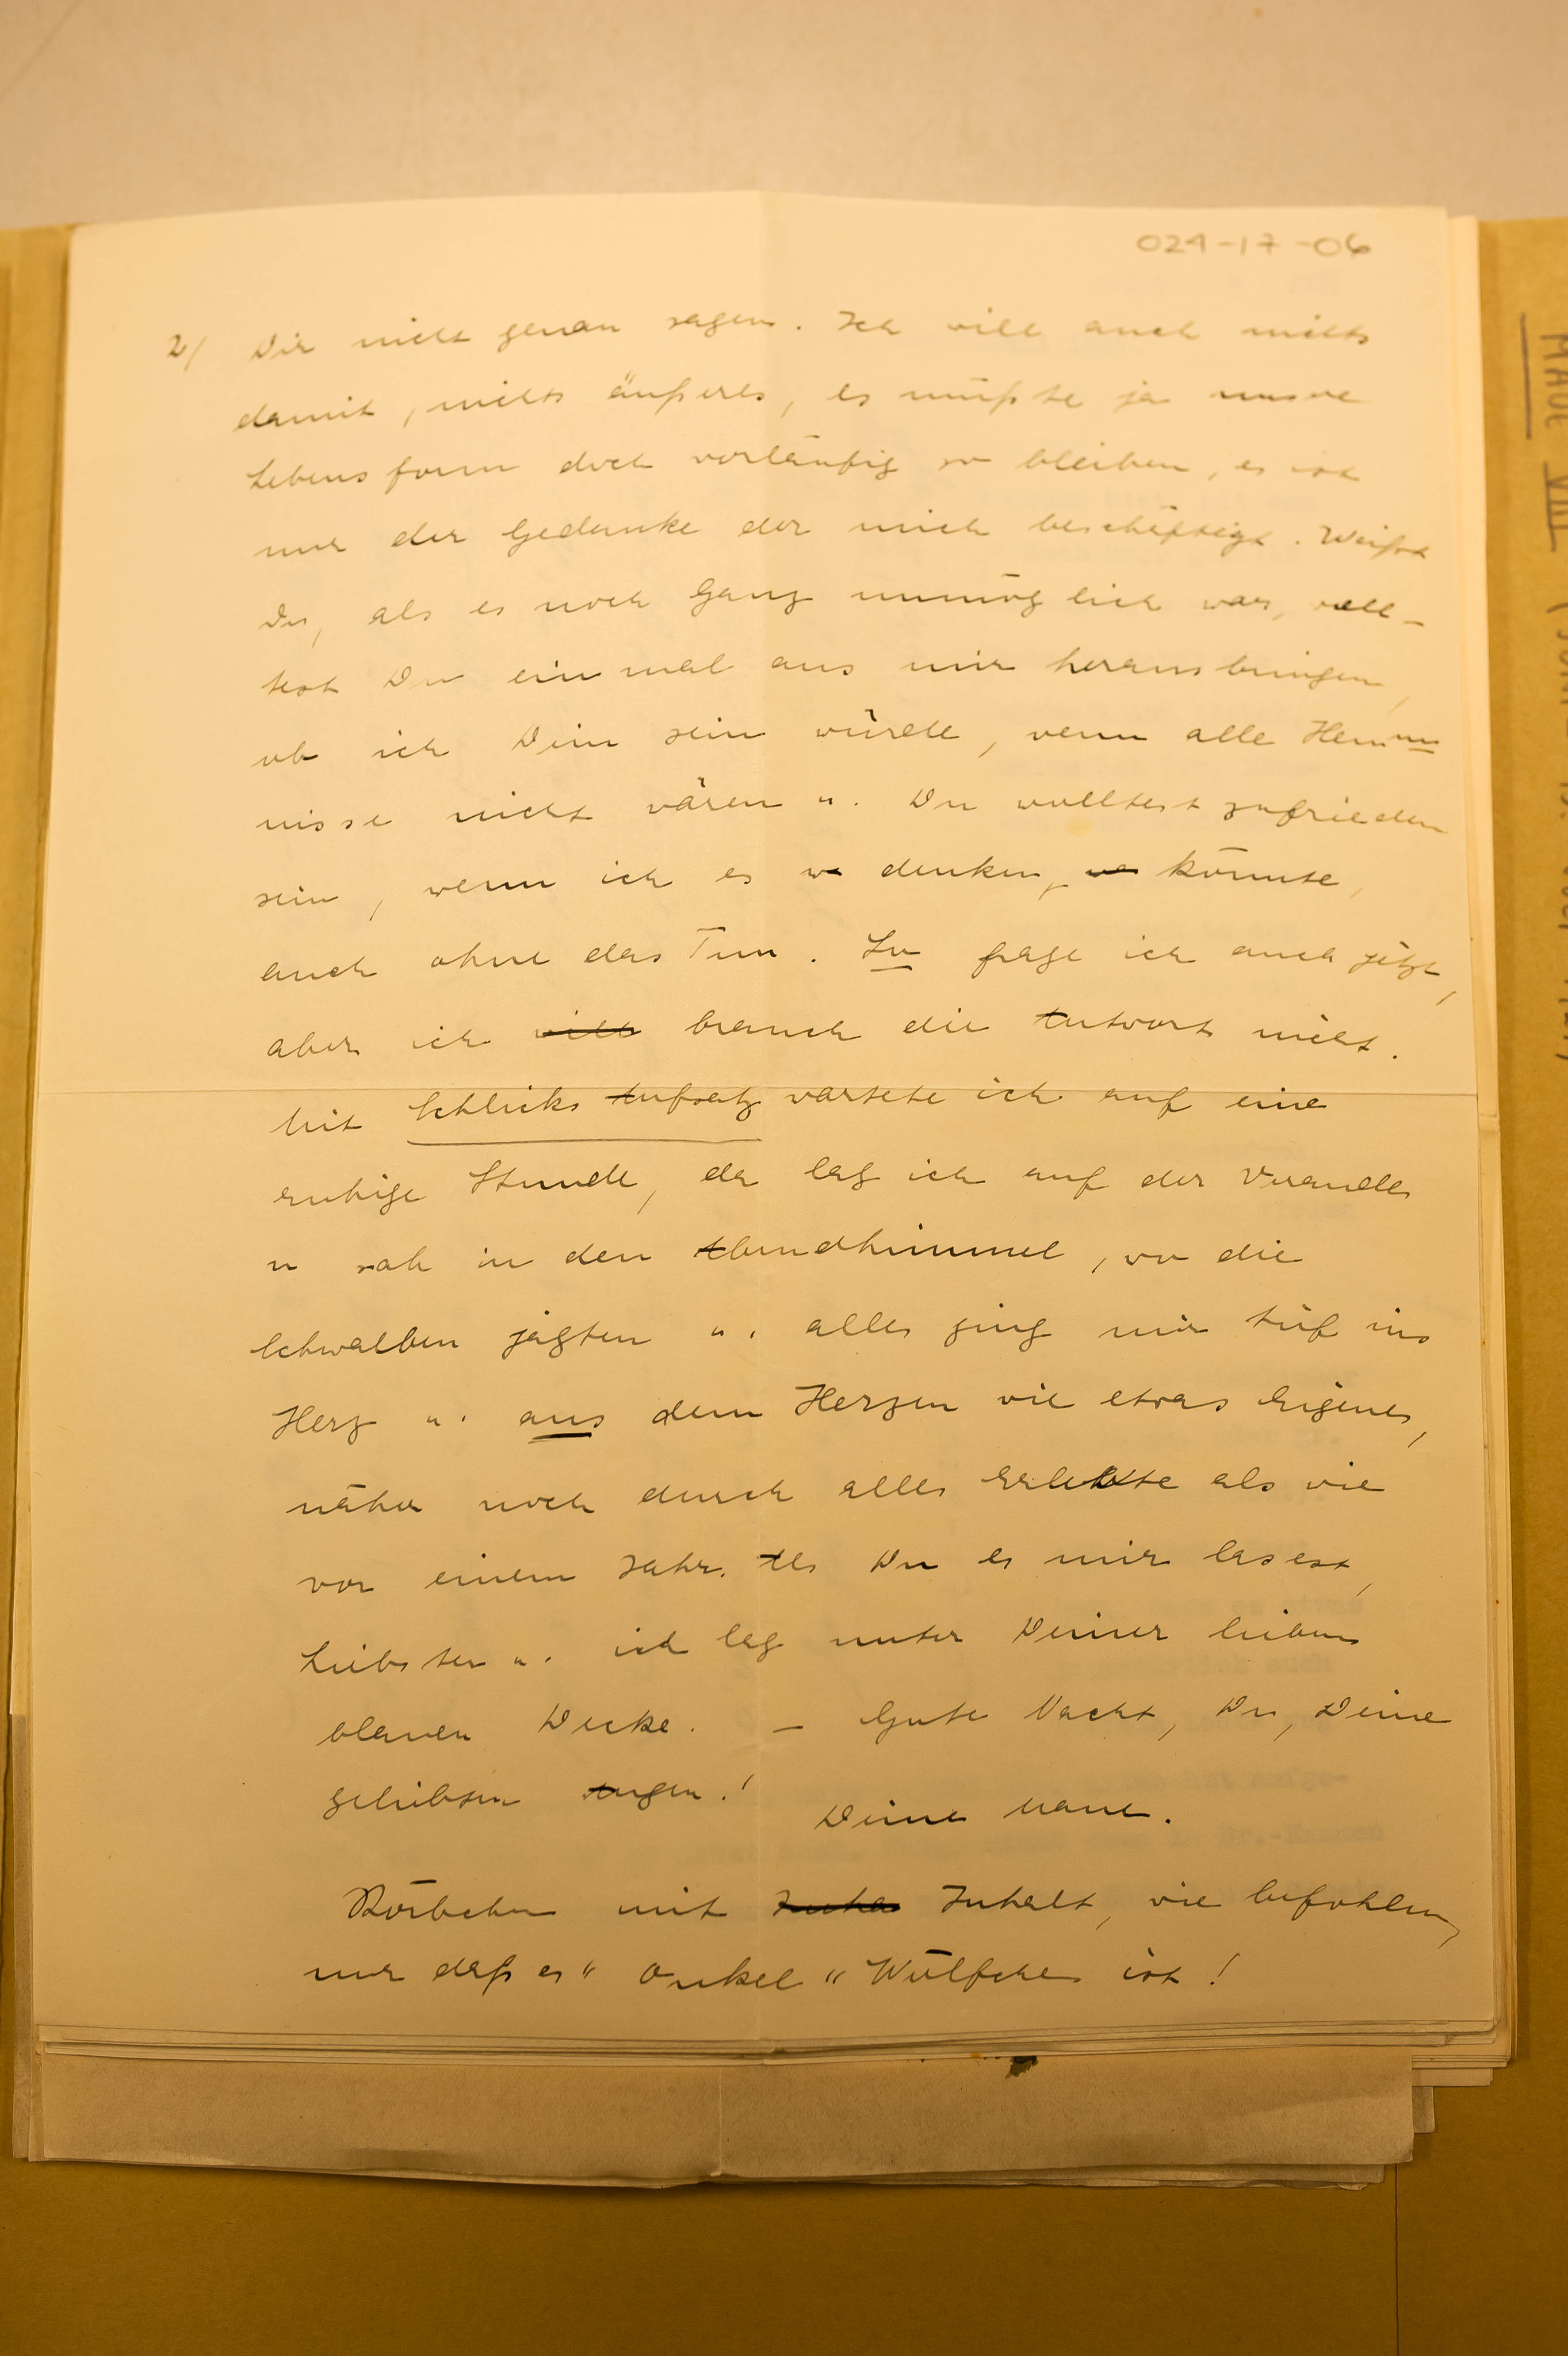 024-17-06
2/ Dir nicht genau sagen. Ich will auch nichts
damit, nichts äußeres, es müßte ja unsre
Lebensform doch vorläufig so bleiben, es ist
nur der Gedanke der mich beschäftigt. Weißt
Du, als es noch ganz unmöglich war, woll-
test Du einmal aus mir herausbringen,
ob ich Dein sein würde, wenn alle Hemm
nisse nicht wären u. Du wolltest zufrieden
sein, wenn ich es denken, könnte,
auch ohne das Tun. So frage ich auch jetzt,
aber ich will brauch die Antwort nicht.
Mit Schlicks Aufsatz wartete ich auf eine
ruhige Stunde, da lag ich auf der Veranda
u sah in den Abendhimmel, wo die
Schwalben jagten u. alles ging mir tief ins
Herz u. aus dem Herzen wie etwas Eigenes,
näher noch durch alles Erlebte als wie
vor einem Jahr. Als Du es mir lasest,
Liebster u. ich lag unter Deiner lieben
blauen Decke. – Gute Nacht, Du, Deine
geliebten Augen!
Deine Maue.
Körbchen mit Inha Inhalt, wie befohlen,
nur daß es "Onkel" Wölfchen ist!
MAUE VIII